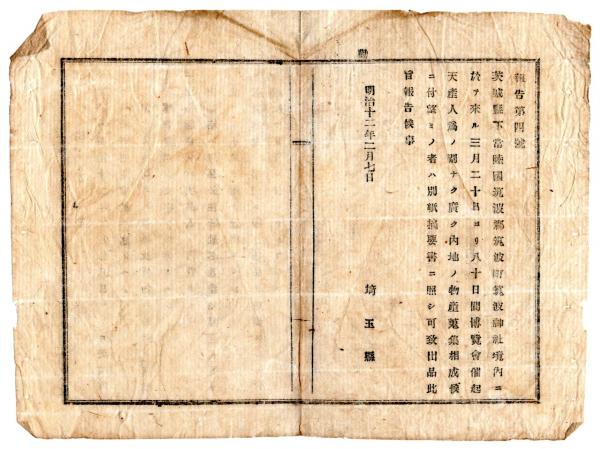 報告第四號
茨城縣下常陸國筑波郡筑波町筑波神社境內ニ
於テ來ル三月二十日ヨリ八十日間博覽會催起
天産人爲ノ別ナク廣ク內地ノ物産蒐集相成候
ニ付望ミノ者ハ別紙摘要書ニ照シ可致出品此
旨報告候事
明治十二年二月七日
埼玉縣